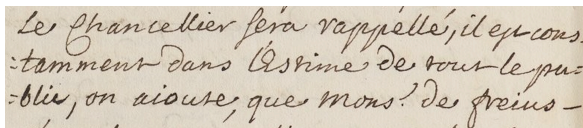 Le Chancellier sera rappellé, il est cons=
=tamment dans l'Estime de tout le pu=
=blic, on aioute, que Mons.r de freius-